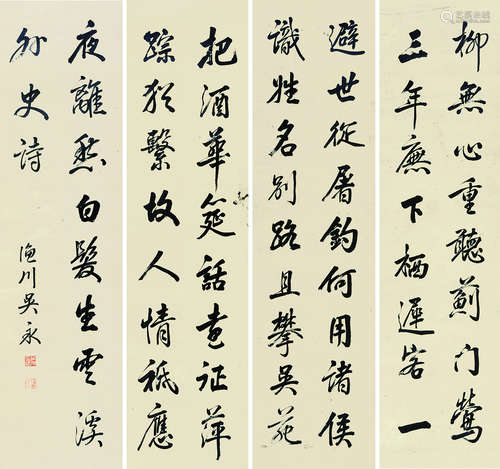 柳無心重聽薊門鶯
三年廡下栖遲客一
避世從屠釣何用諸侯
識姓名別路且攀吳苑
把酒華筵話遠征萍
踪猶繫故人情祗應
夜離愁白髮生雲溪
外史詩
漁川吳永